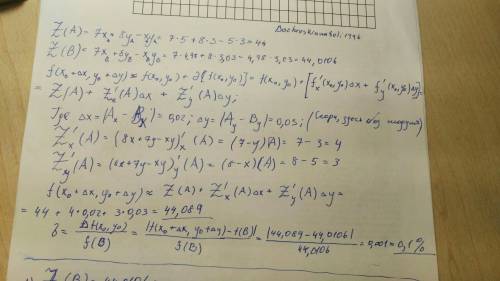 Dockovskianatoli.1996
Z(A) = 7x_A + 8y_A - x_A y_A = 7·5 + 8·3 - 5·3 = 44
Z(B) = 7x_B + 8y_B - x_B y_B = 7·4,98 + 8·3,03 - 4,98·3,03 = 44,0106
f(x₀+Δx, y₀+Δy) ≈ f(x₀, y₀) + ∂[f(x₀, y₀)] = f(x₀, y₀) + [f'ₓ(x₀, y₀)Δx + f'_y(x₀, y₀)Δy] =
= Z(A) + Z'ₓ(A)Δx + Z'_y(A)Δy;
Где Δx = |Aₓ - Bₓ| = 0,02; Δy = |A_y - B_y| = 0,03; (Скорее, здесь без модуля)
Z'ₓ(A) = (8x+7y-xy)'ₓ(A) = (7-y)(A) = 7-3 = 4
Z'_y(A) = (8x+7y-xy)'_y(A) = (8-x)(A) = 8-5 = 3
f(x₀+Δx, y₀+Δy) ≈ Z(A) + Z'ₓ(A)Δx + Z'_y(A)Δy =
= 44 + 4·0,02 + 3·0,03 = 44,089
δ = Δf(x₀, y₀)/f(B) = |f(x₀+Δx, y₀+Δy) - f(B)|/f(B) = |44,089 - 44,0106|/44,0106 = 0,001 = 0,1%